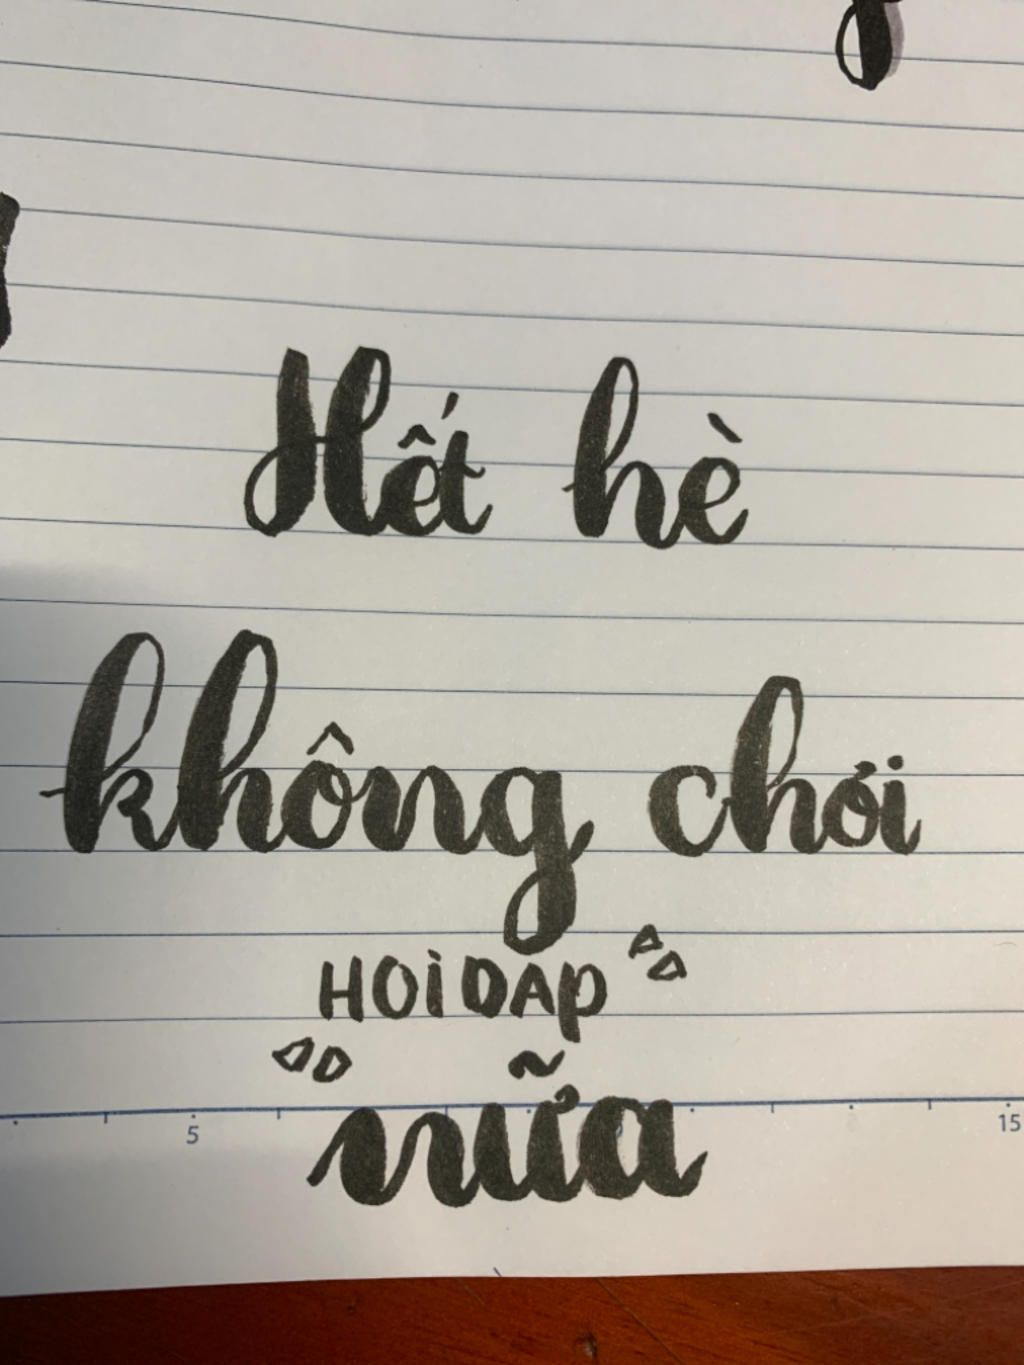 Hết hè
không chơi
HOIDAP
nữa
5
15